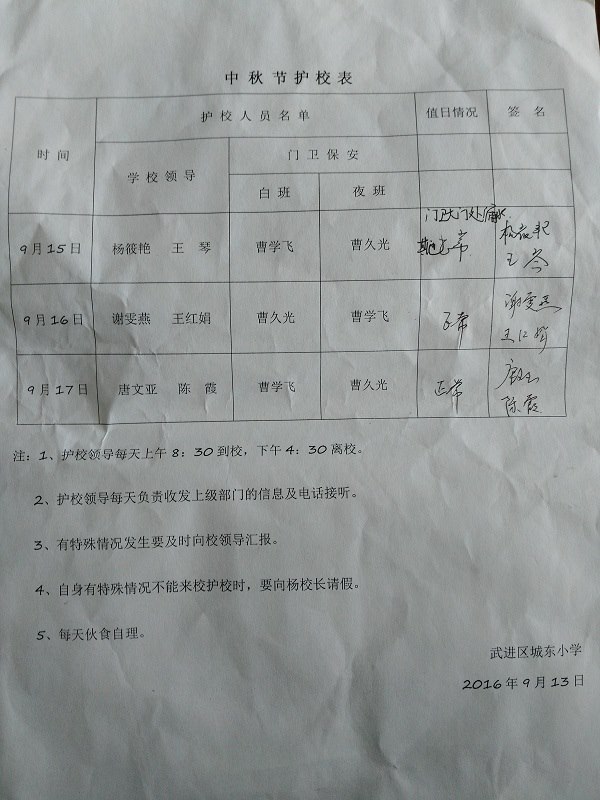 中秋节护校表
时间 护校人员名单 值日情况 签名
学校领导 门卫保安
白班 夜班
9月15日 杨筱艳 王琴 曹学飞 曹久光 正常 王琴
9月16日 谢雯燕 王红娟 曹久光 曹学飞 正常 谢雯燕 王红娟
9月17日 唐文亚 陈霞 曹学飞 曹久光 正常 陈霞
注：1、护校领导每天上午8：30到校，下午4：30离校。
2、护校领导每天负责收发上级部门的信息及电话接听。
3、有特殊情况发生要及时向校领导汇报。
4、自身有特殊情况不能来校护校时，要向杨校长请假。
5、每天伙食自理。
武进区城东小学
2016年9月13日